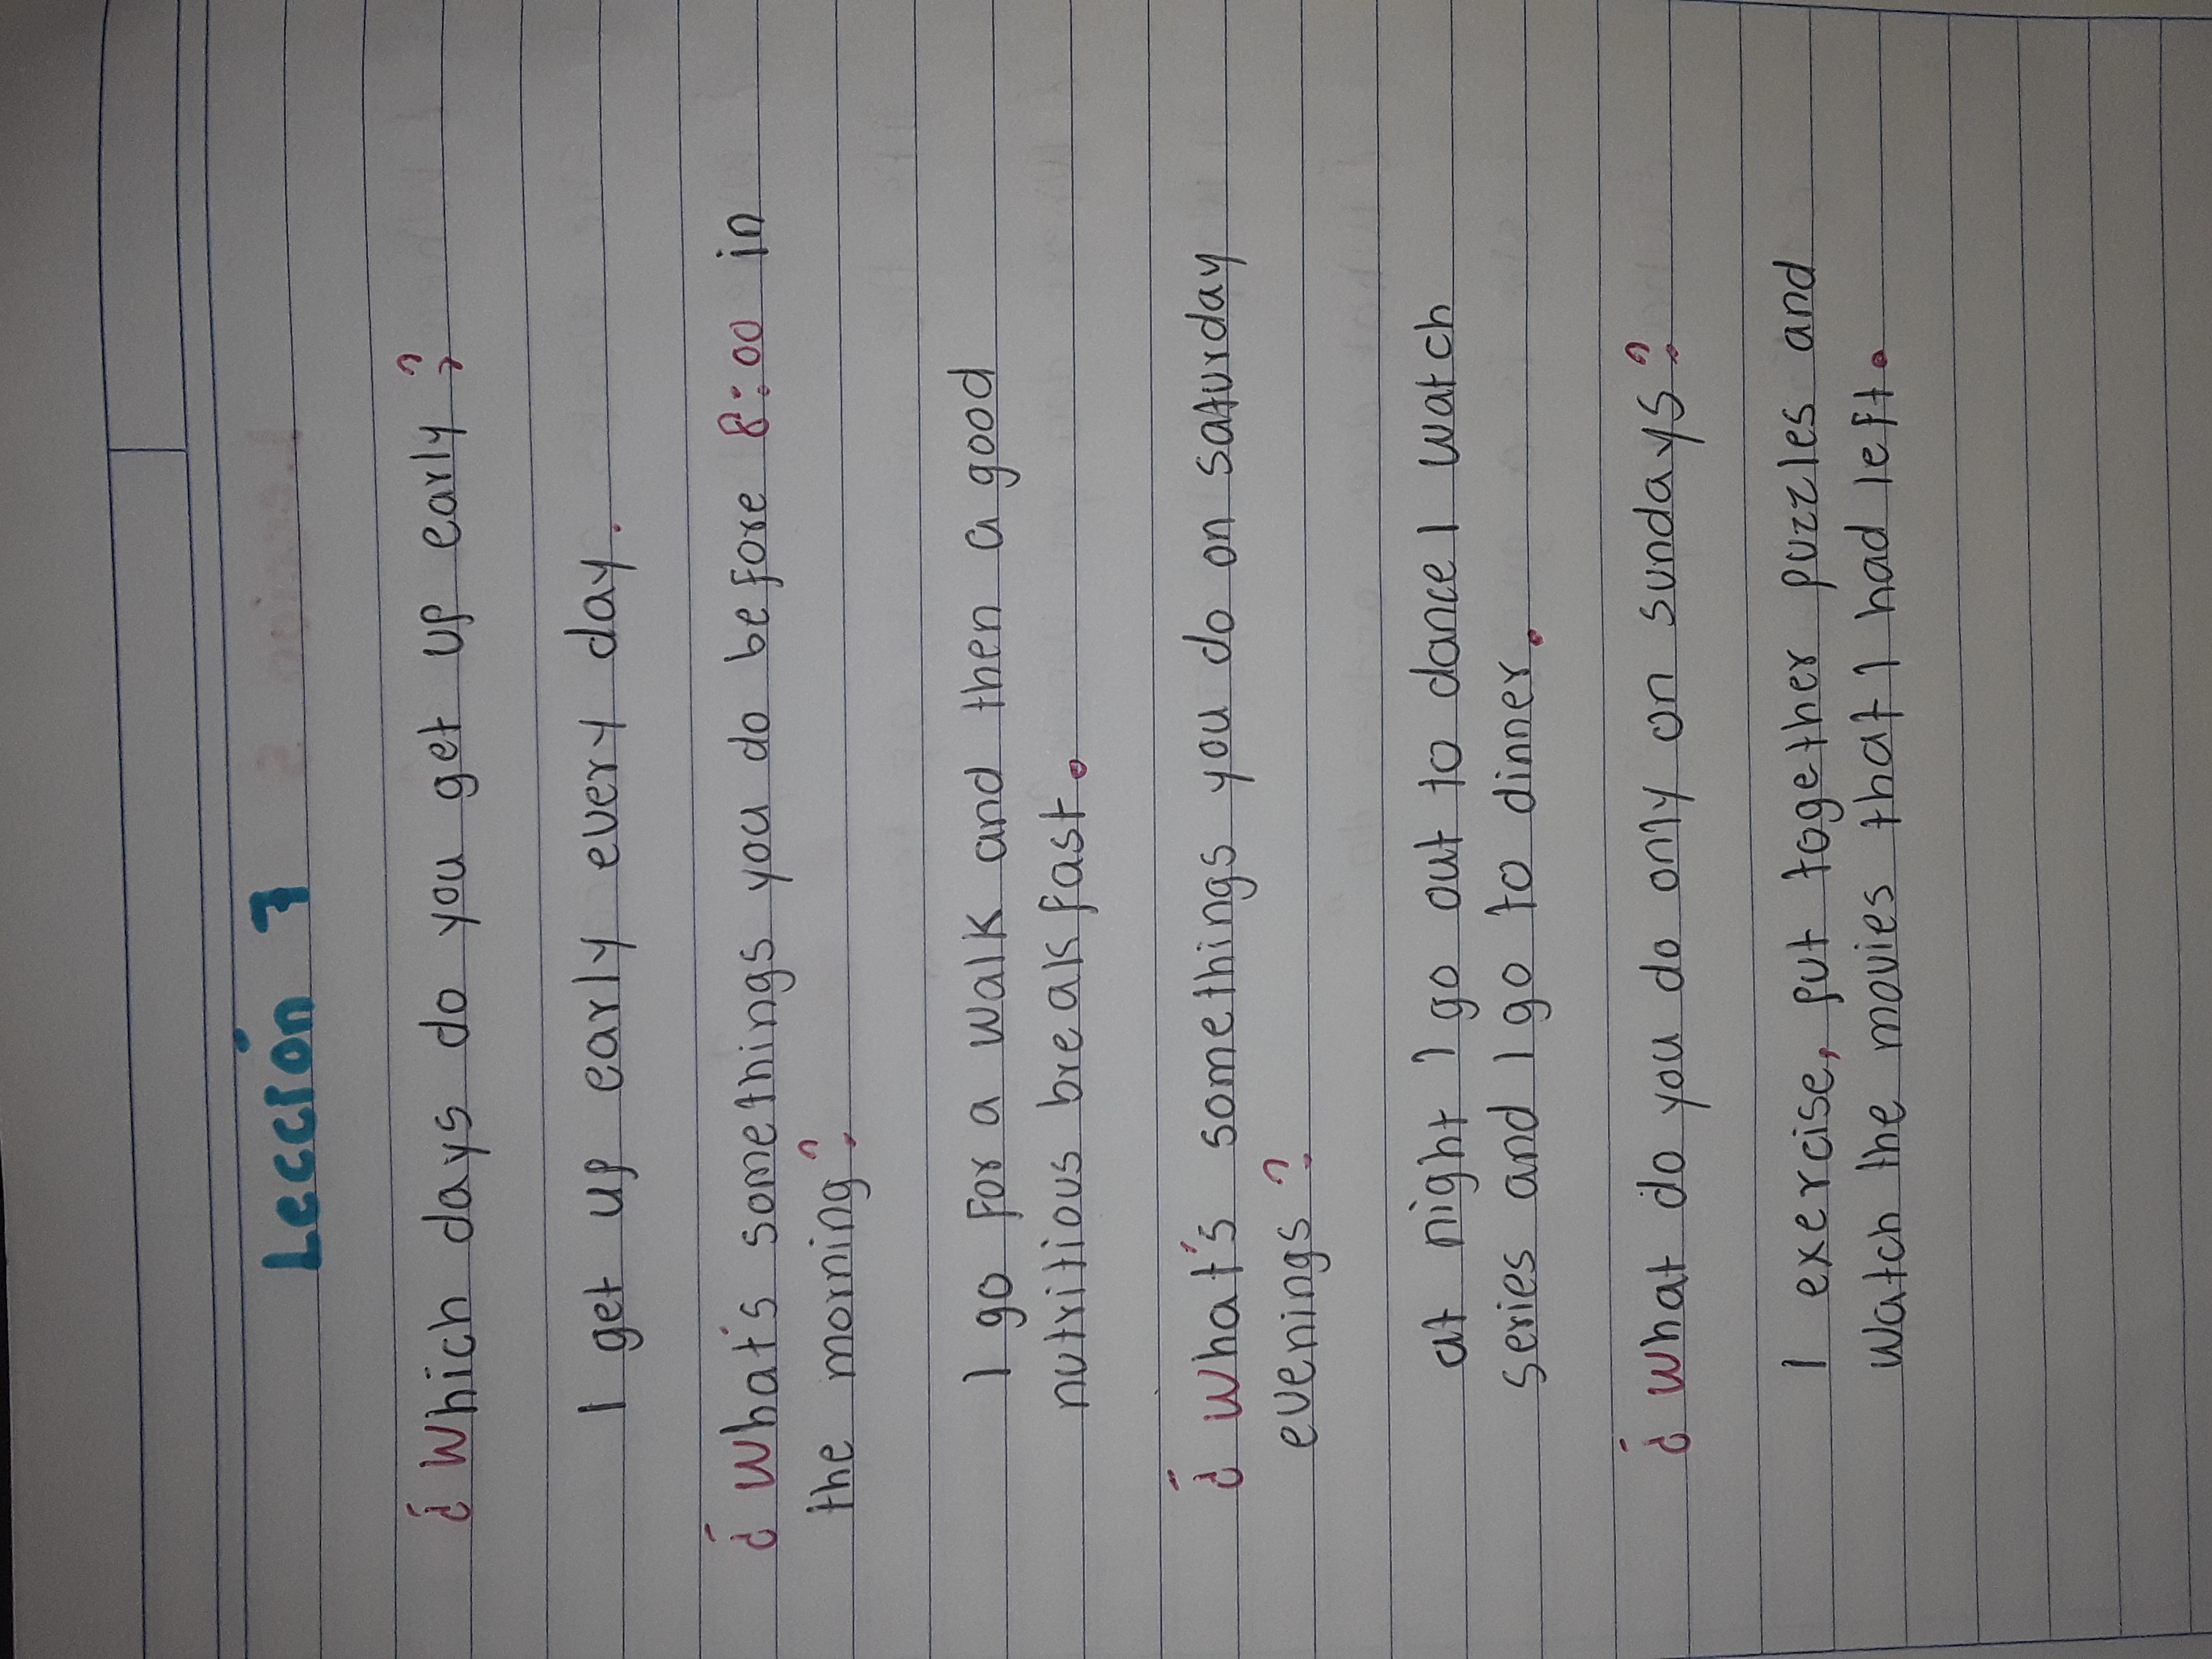 Lección 7
¿Which days do you get up early?
I get up early every day.
¿What's somethings you do before 8:00 in
the morning?
I go for a walk and then a good
nutritious breakfast.
¿What's somethings you do on saturday
evenings?
at night I go out to dance I watch
series and I go to dinner.
¿What do you do only on sundays?
I exercise, put together puzzles and
watch the movies that I had left.